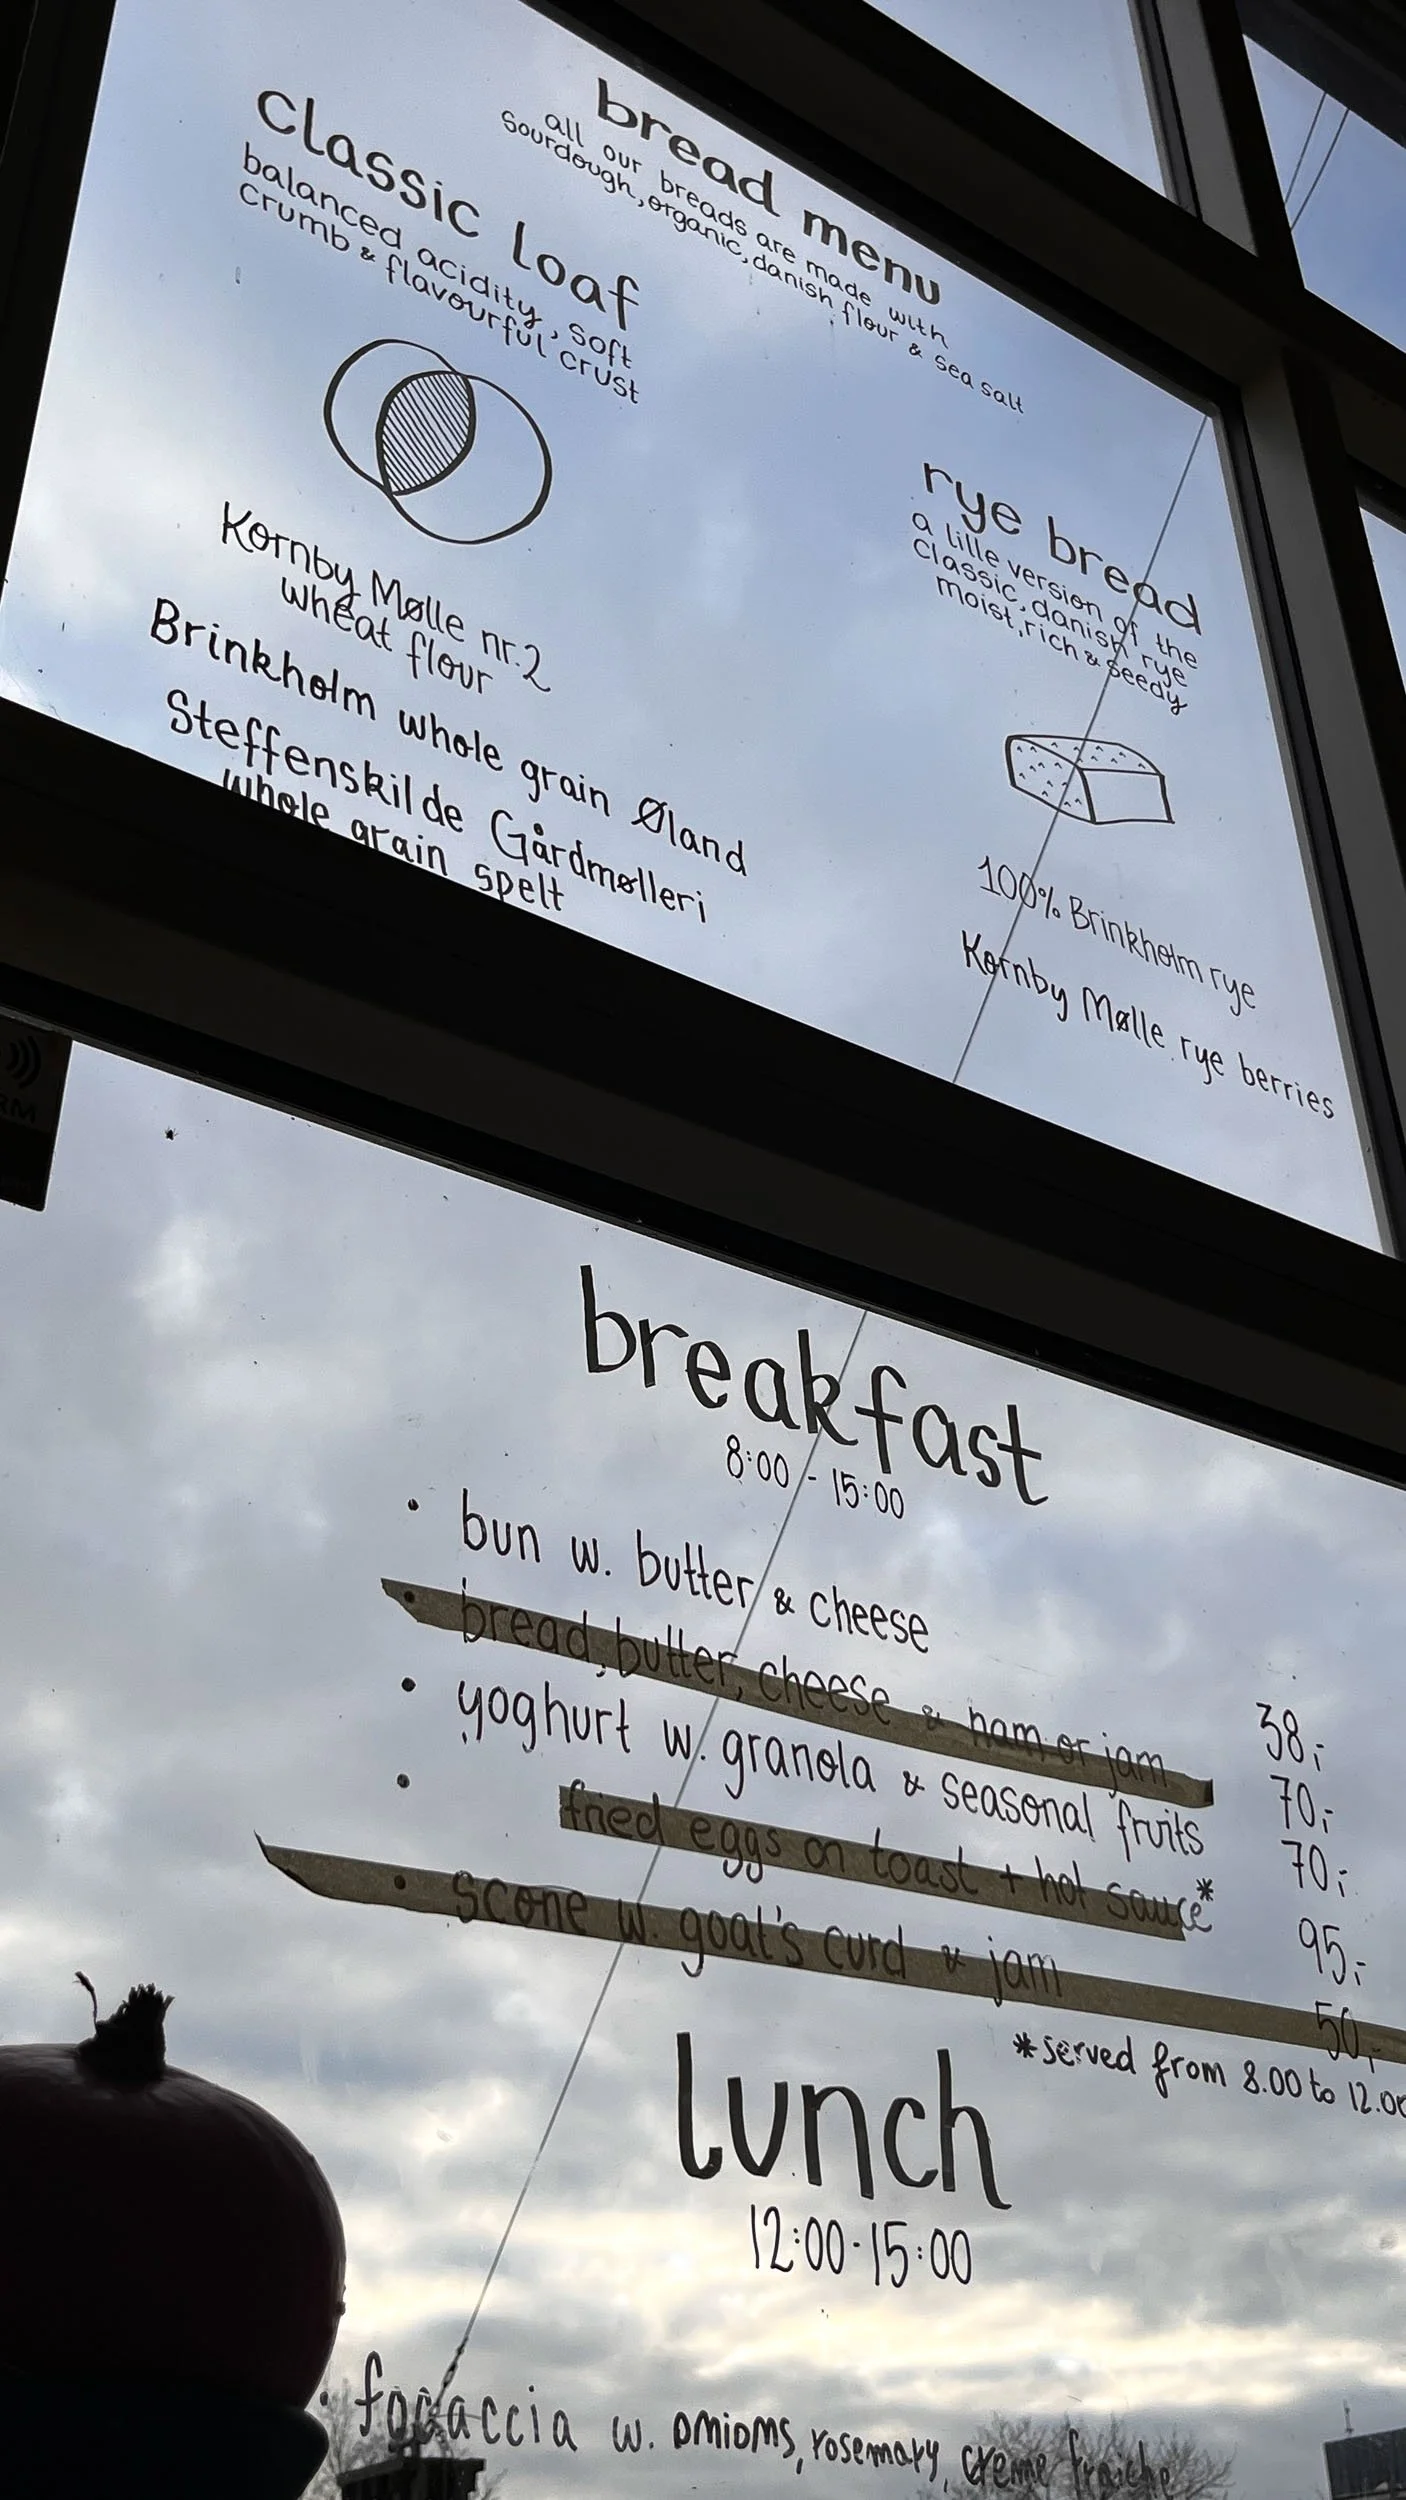 bread menu
all our breads are made with
sourdough, organic, danish flour & sea salt
classic loaf
balanced acidity, soft
crumb & flavourful crust
Kornby Mølle nr.2
wheat flour
Brinkholm whole grain Øland
Steffenskilde Gårdmølleri
whole grain spelt
rye bread
a lille version of the
classic, danish rye
moist, rich & seedy
100% Brinkholm rye
Kornby Mølle rye berries
RM
breakfast
8:00 - 15:00
• bun w. butter & cheese 38,-
• bread, butter, cheese & ham or jam 70,-
• yoghurt w. granola & seasonal fruits 70,-
• fried eggs on toast + hot sauce* 95,-
• scone w. goat's curd & jam 50,-
*served from 8.00 to 12.00
lunch
12:00-15:00
• focaccia w. onions, rosemary, creme fraiche